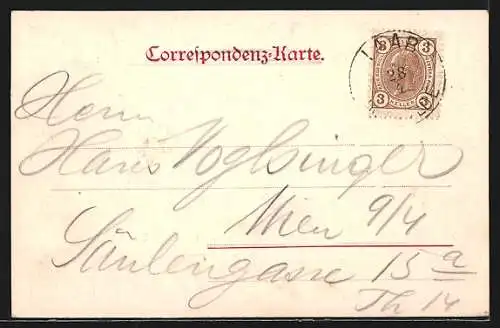 Correspondenz-Karte.
LAAB
3 3
28
3 3
HELLER
Herrn
Hans Voglsinger
Wien 9/4
Säulengasse 15 a
Th 14